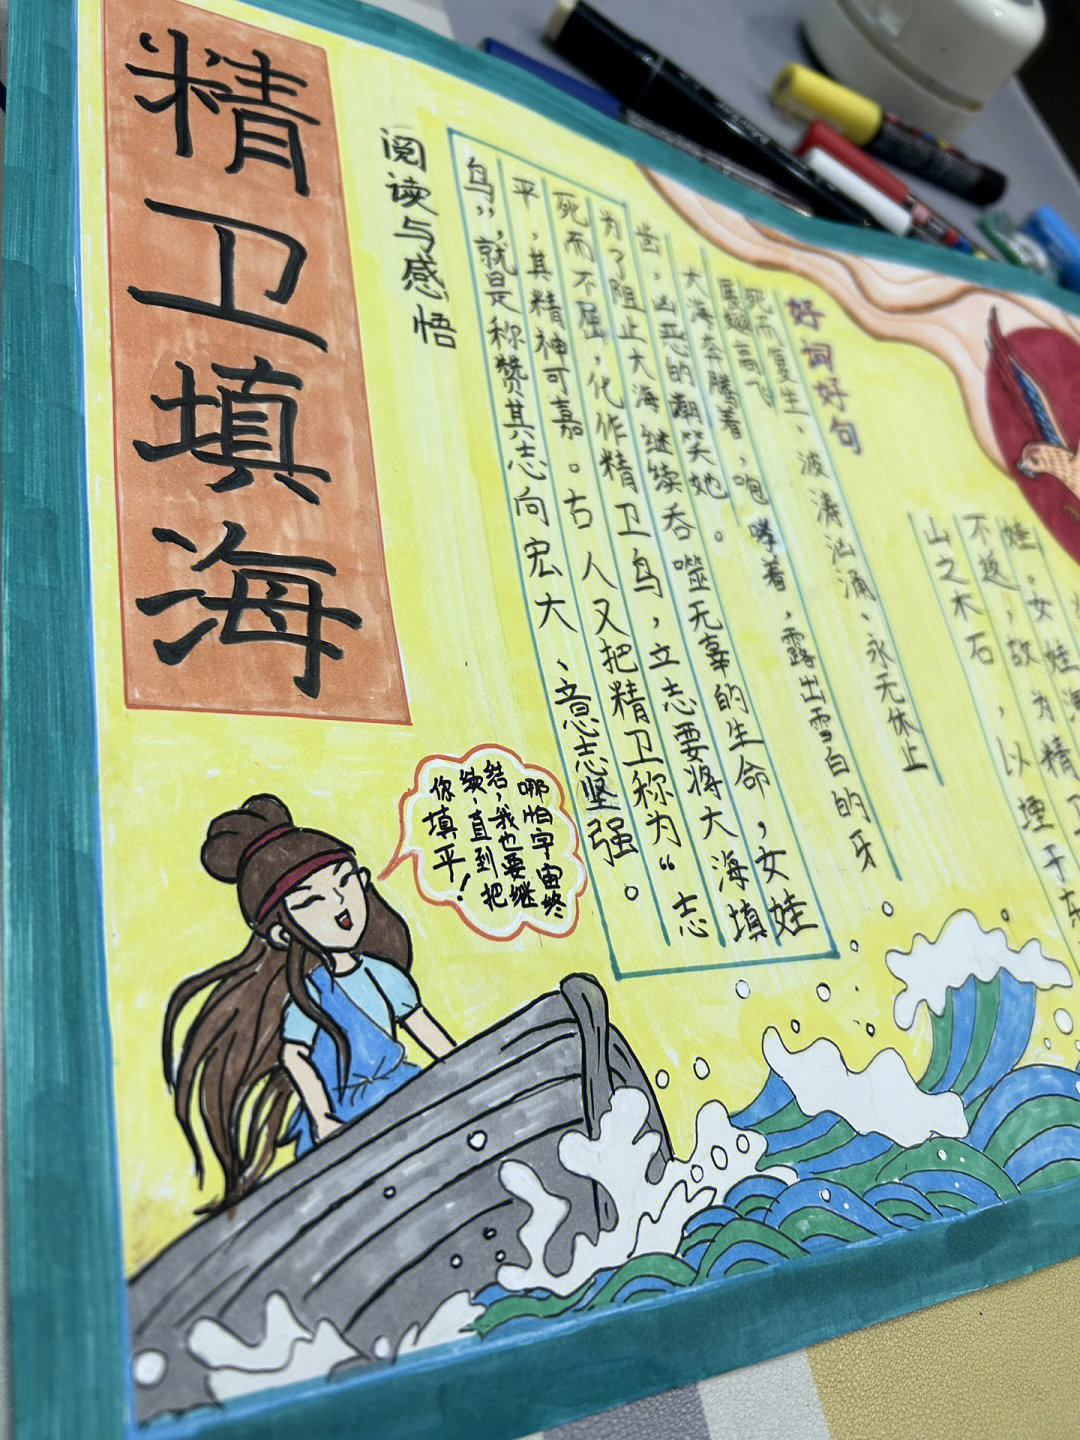 娃。女娃
不返,故为精卫
山之木石,以堙于东
好词好句
死而复生、波涛汹涌、永无休止
展翅高飞
大海奔腾着,咆哮着,露出雪白的牙
齿,凶恶的嘲笑她。
阅读与感悟
为了阻止大海继续吞噬无辜的生命,女娃
死而不屈,化作精卫鸟,立志要将大海填
平,其精神可嘉。古人又把精卫称为“志
鸟”,就是称赞其志向宏大、意志坚强。
哪怕宇宙终
结,我也要继
续,直到把
你填平!
精卫填海